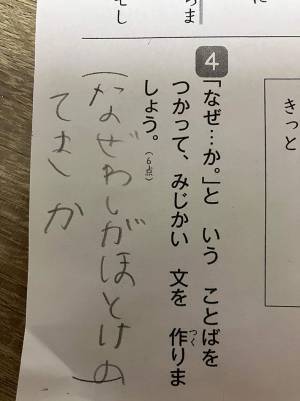 に
らま
きっと
4
「なぜ…か。」と いう ことばを
つかって、みじかい 文を 作(つく)りま
しょう。(6点)
(なぜわしがほとけの
てきか)